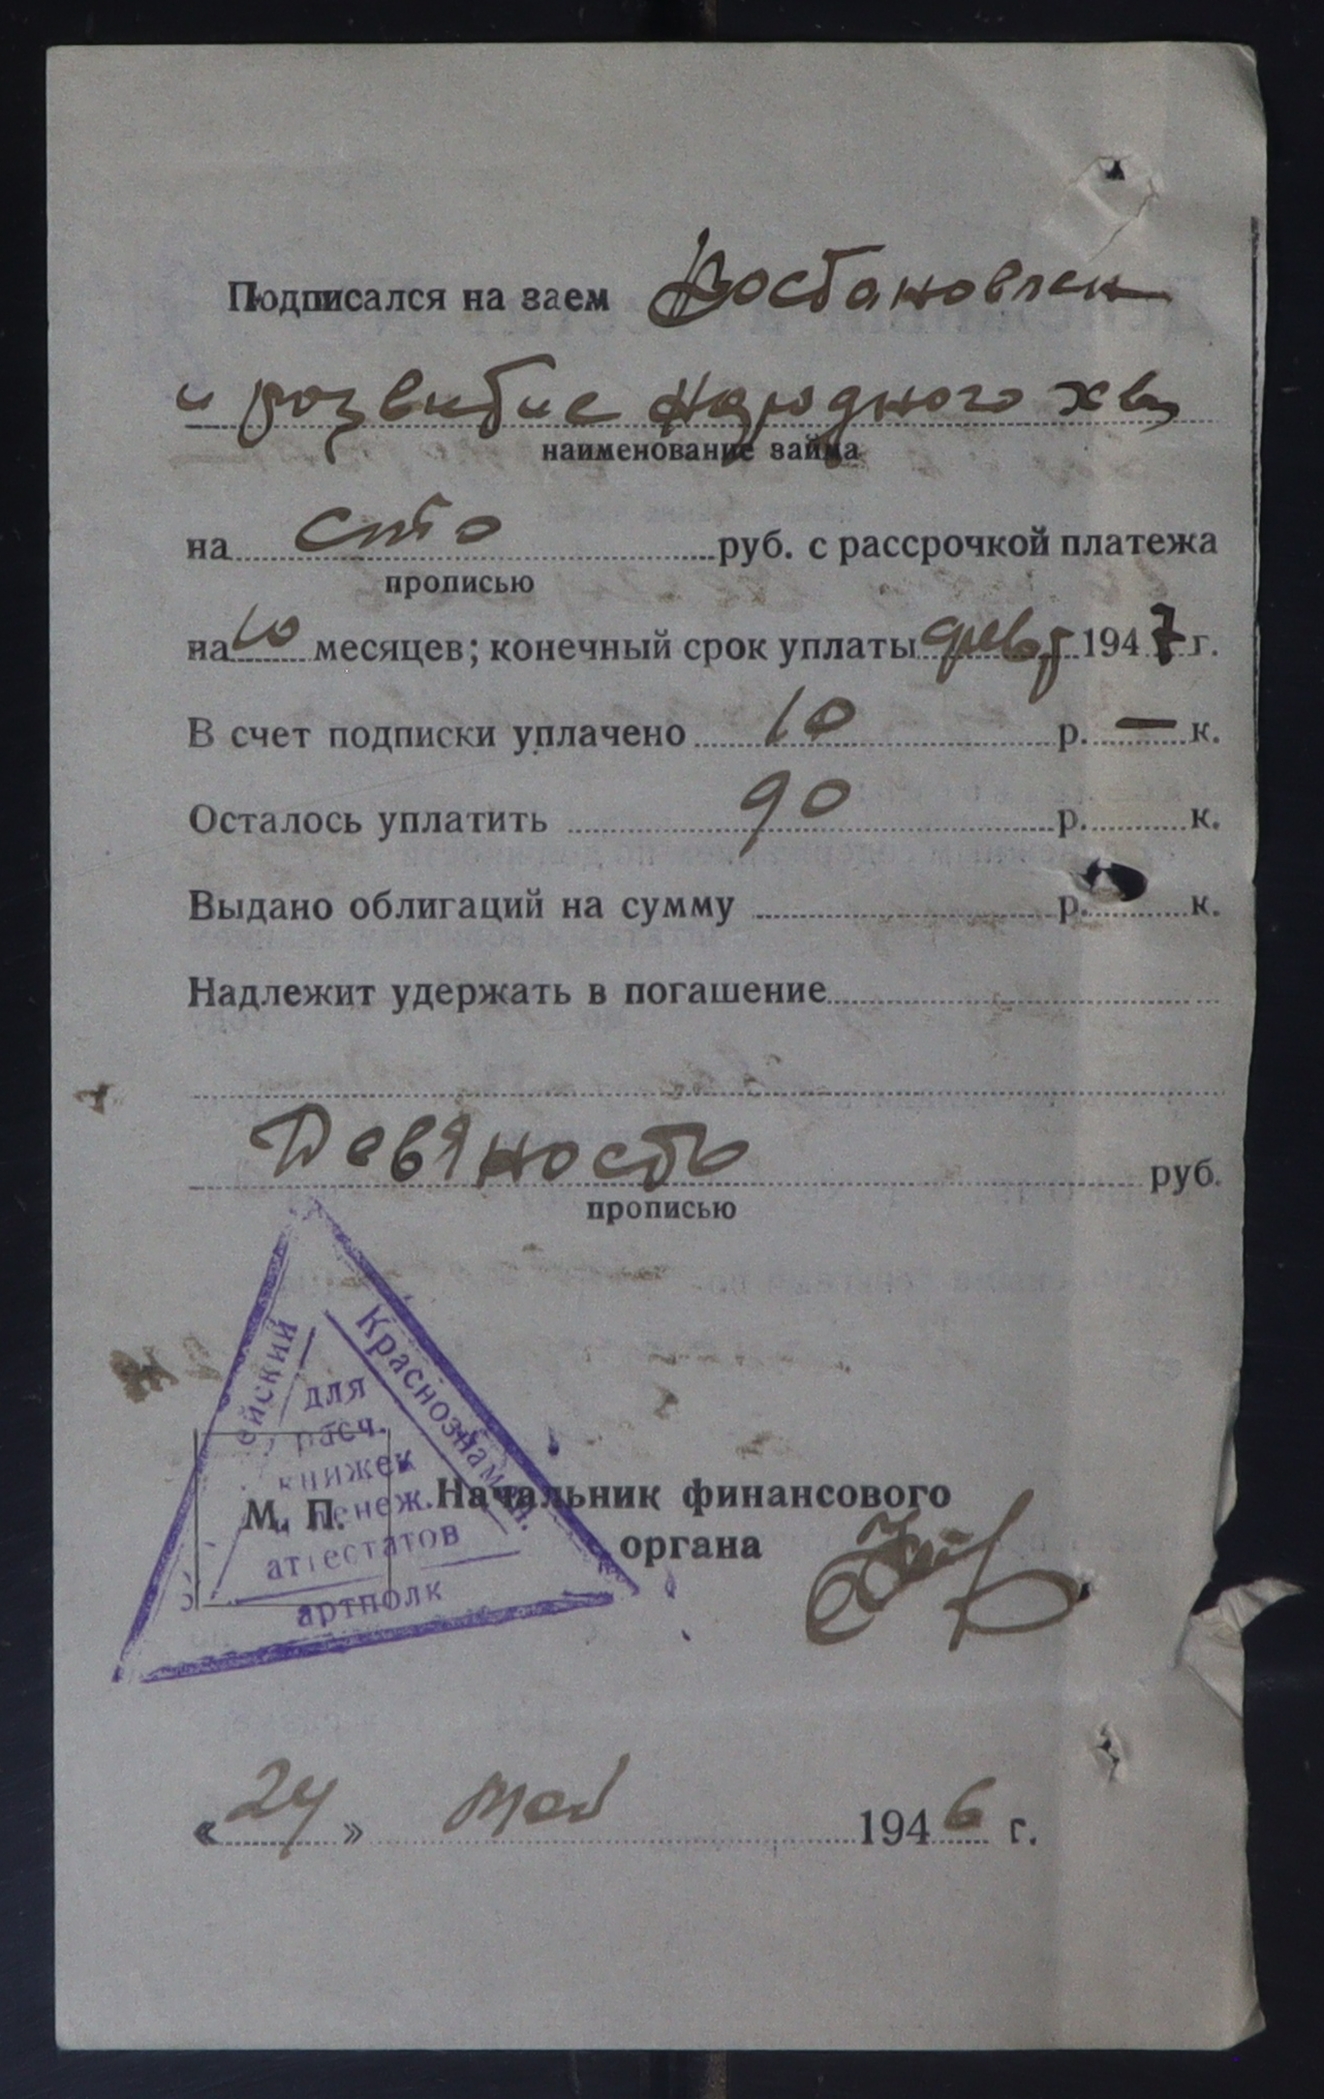 Подписался на заем Востановлен
и розвитие народного хва
наименование займа
на сто руб. с рассрочкой платежа
прописью
на 10 месяцев; конечный срок уплаты февр 1947 г.
В счет подписки уплачено 10 р. — к.
Осталось уплатить 90 р. к.
Выдано облигаций на сумму р. к.
Надлежит удержать в погашение
Девяносто руб.
прописью
ейский
Краснознамен.
для
расч.
книжек
денеж.
аттестатов
артполк
М. П.
Начальник финансового
органа
«24» мая 1946 г.